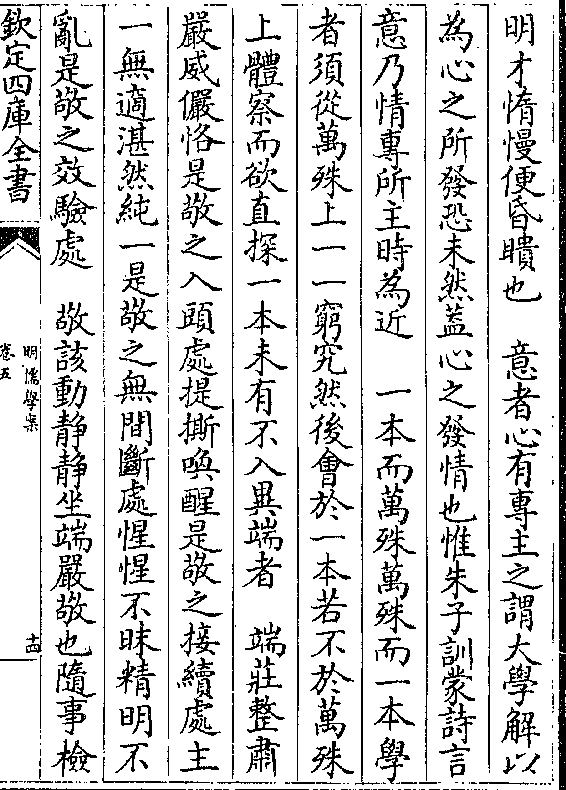 明才惰慢便昏瞶也　意者心有專主之謂大學解以
為心之所發恐未然葢心之發情也惟朱子訓蒙詩言
意乃情專所主時為近　一本而萬殊萬殊而一本學
者須從萬殊上一一窮究然後會於一本若不於萬殊
上體察而欲直探一本未有不入異端者　端莊整肅
嚴威儼恪是敬之入頭處提撕喚醒是敬之接續處主
一無適湛然純一是敬之無間斷處惺惺不昧精明不
亂是敬之效驗處　敬該動静静坐端嚴敬也隨事檢
欽定四庫全書
明儒學案
卷五
十四